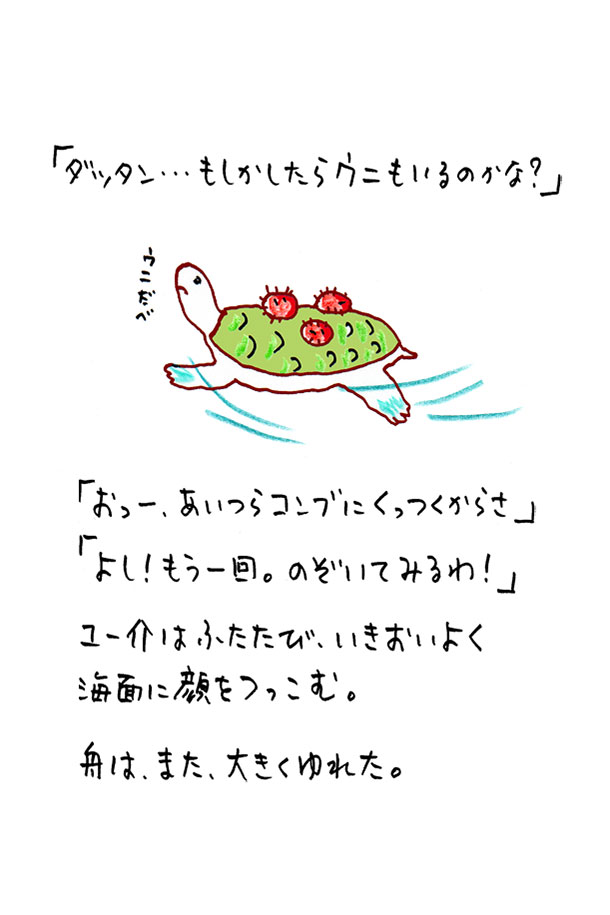 「ダッタン…もしかしたらウニもいるのかな?」
ウニだべ
「おっー、あいつらコンブにくっつくからさ」
「よし!もう一回。のぞいてみるわ!」
ユー介はふたたび、いきおいよく
海面に顔をつっこむ。
舟は、また、大きくゆれた。